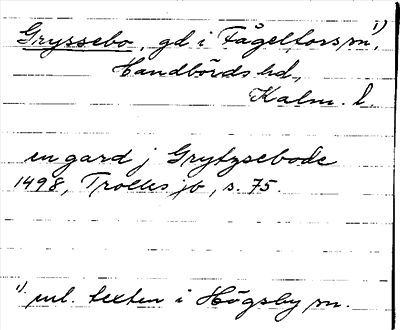 Gryssebo, gd i Fågelfors sn ¹),
Handbörds hd,
Kalm. l.
en gard j Grytzsebode
1498, Trolles jb, s. 75.
¹) enl. texten i Högsby sn.